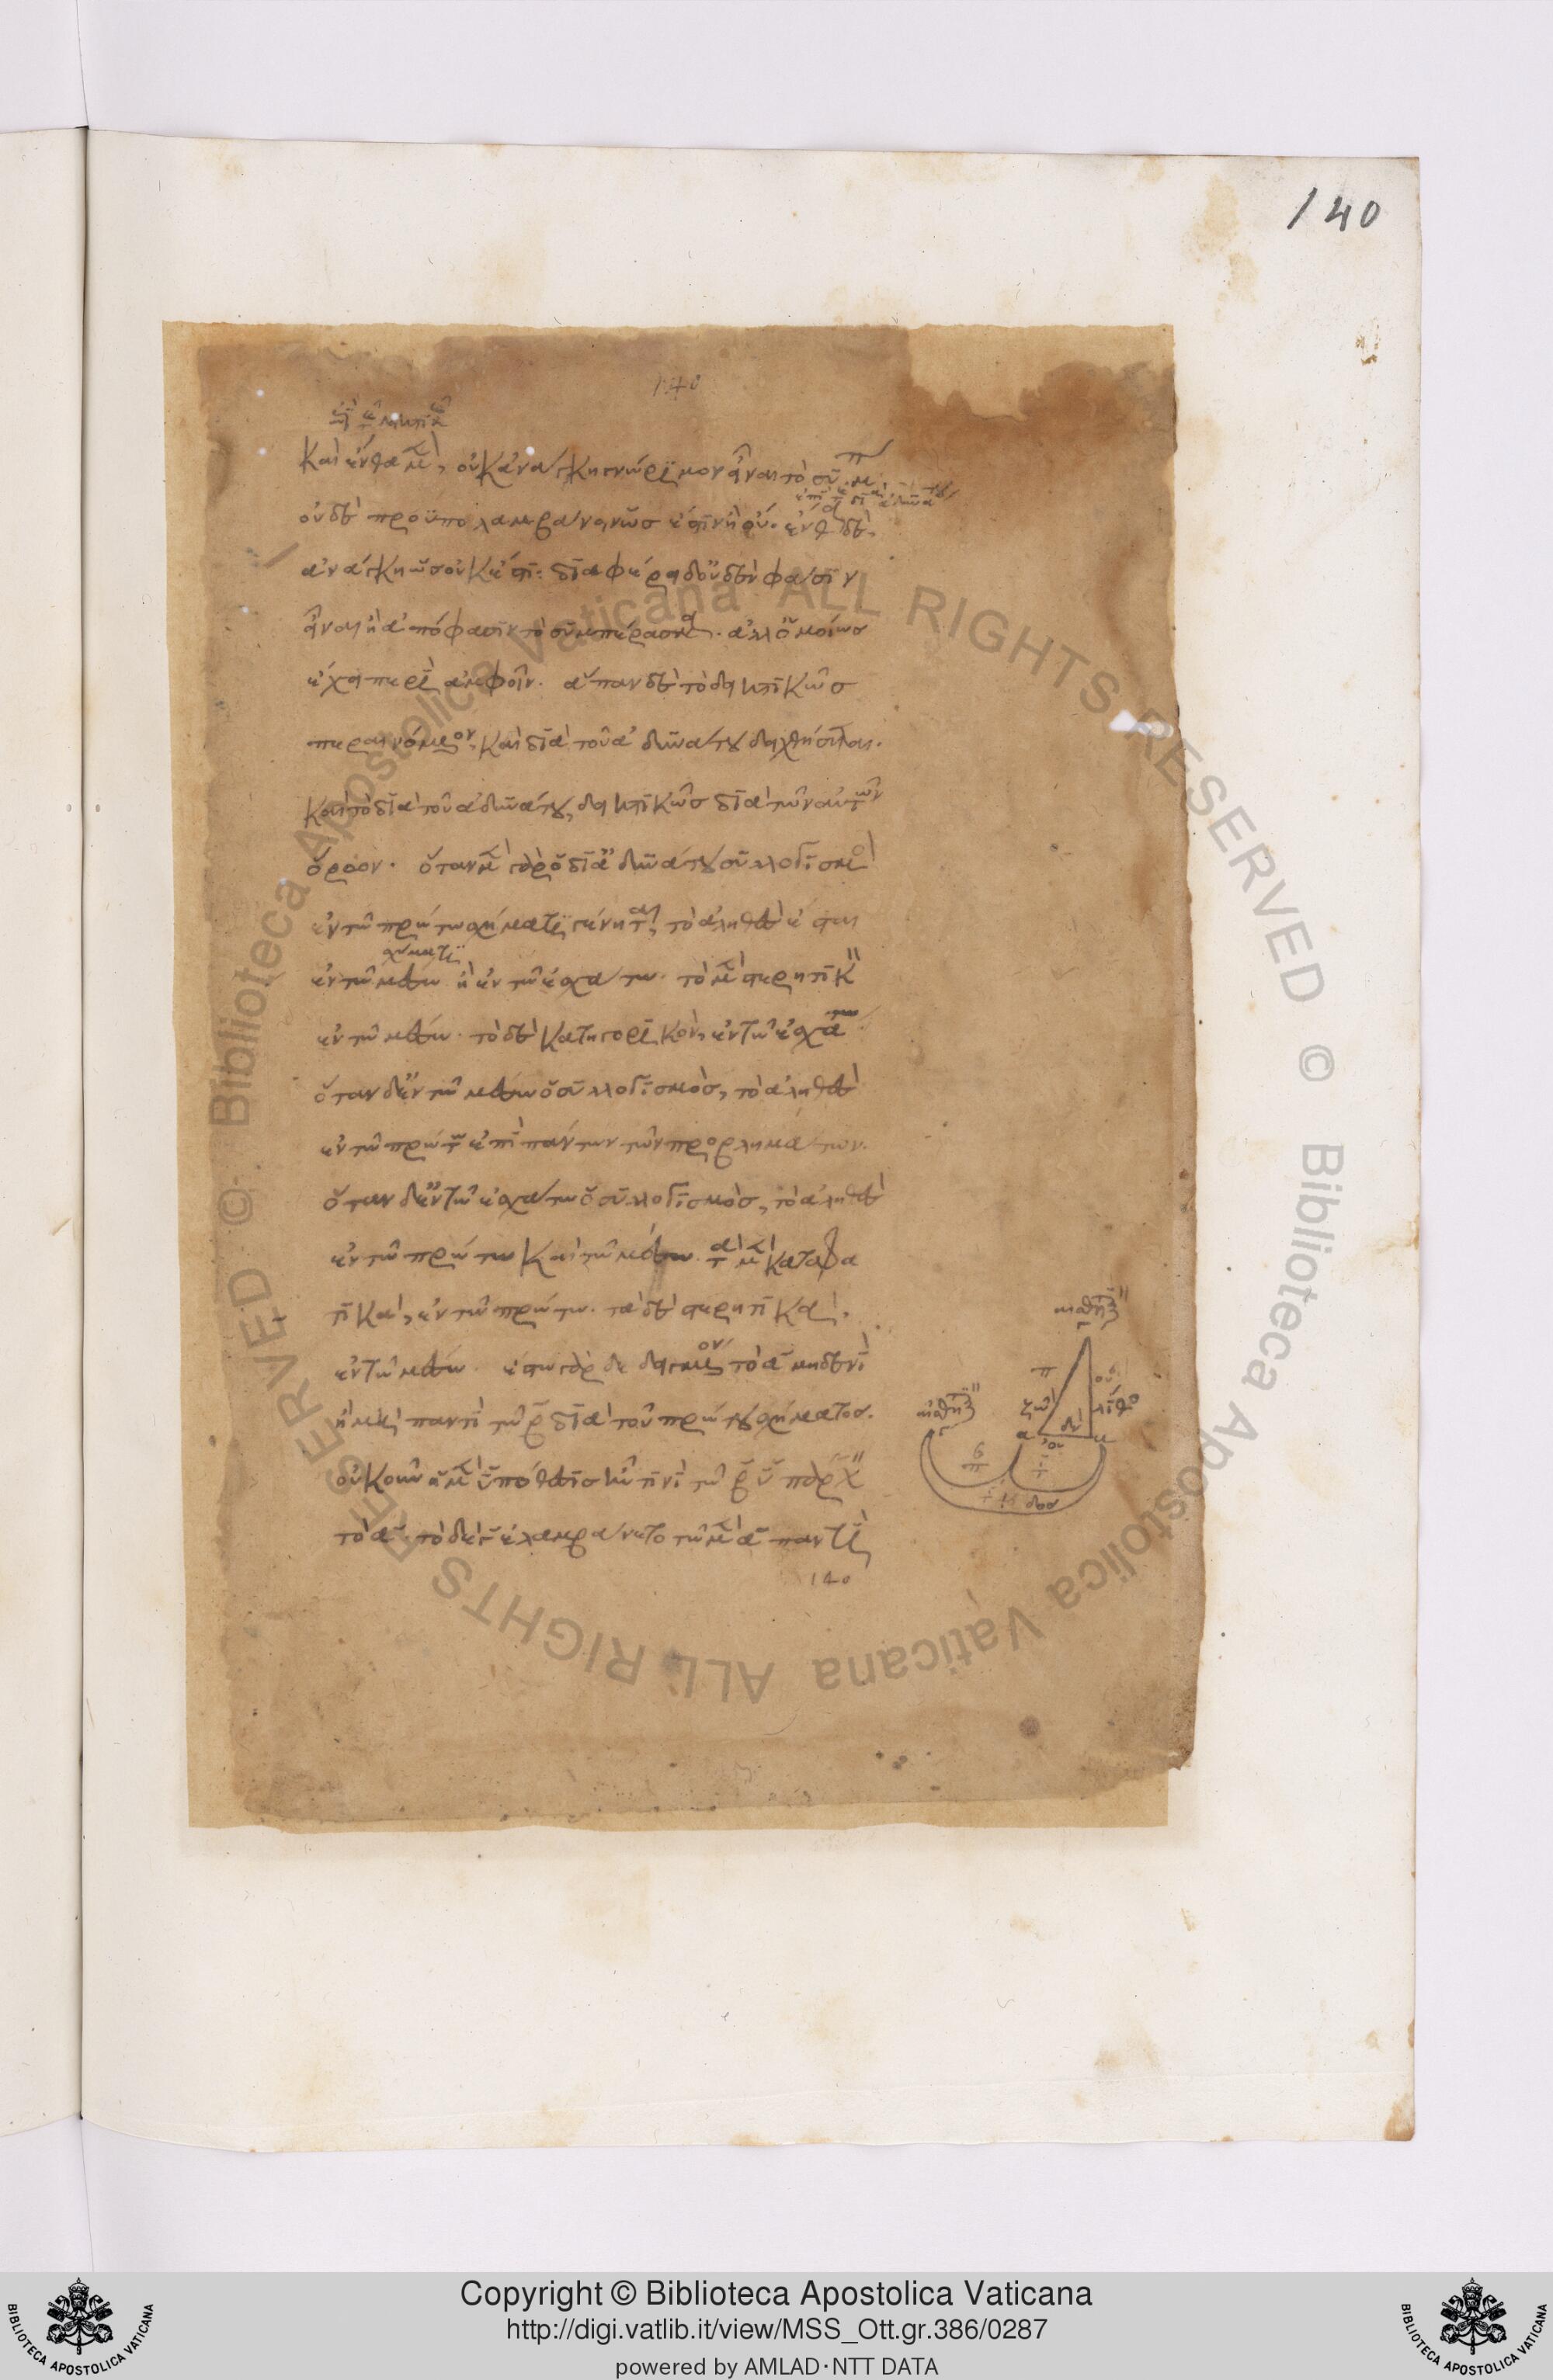 140
140
καὶ ἔνθα μὲν, οὐκ ἀνάγκη γνώριμον εἶναι τὸ συμπ
οὐδὲ προϋπολαμβάνειν ὡς ἐστὶν ἢ οὔ. ἔνθα δὲ,
ἀνάγκη ὡς οὐκ ἔστι: διαφέρει δ' οὐδὲν φάσιν
εἶναι ἢ ἀπόφασιν τὸ συμπέρασμα. ἀλλ' ὁμοίως
ἔχει περὶ ἀμφοῖν. ἅπαν δὲ τὸ δεικτικῶς
περαινόμενον, καὶ διὰ τοῦ ἀδυνάτου δειχθήσεται.
καὶ τὸ διὰ τοῦ ἀδυνάτου, δεικτικῶς διὰ τῶν αὐτῶν
ὅρων. ὅταν μὲν γὰρ ὁ διὰ ἀδυνάτου συλλογισμὸ
ἐν τῶ πρώτω σχήματι γένηται, τὸ ἀληθὲς ἔσται
σχήματι
ἐν τῶ μέσω ἢ ἐν τῶ ἐσχάτω. τὸ μὲν στερητικ
ἐν τῶ μέσω. τὸ δὲ κατηγορικὸν, ἐν τῶ ἐσχάτω
ὅταν δ' ἐν τῶ μέσω ὁ συλλογισμὸς, τὸ ἀληθὲς
ἐν τῶ πρώτω ἐπὶ πάντων τῶν προβλημάτων.
ὅταν δ' ἐν τῶ ἐσχάτω ὁ συλλογισμὸς, τὸ ἀληθὲς
ἐν τῶ πρώτω καὶ τῶ μέσω. τὰ μὲν καταφα
τικὰ, ἐν τῶ πρώτω. τὰ δὲ στερητικὰ,
ἐν τῶ μέσω. ἔστω γὰρ δεδειγμένον τὸ α μηδενὶ
ἢ μὴ παντὶ τῶ β διὰ τοῦ πρώτου σχήματος.
οὐκοῦν ἡ μὲν ὑπόθεσις ἦν τινὶ τῶ β ὑπάρχ
τὸ α. τὸ δὲ γ ἐλαμβάνετο τῶ μὲν α παντὶ
140
Copyright © Biblioteca Apostolica Vaticana
http://digi.vatlib.it/view/MSS_Ott.gr.386/0287
powered by AMLAD·NTT DATA
BIBLIOTECA APOSTOLICA VATICANA
BIBLIOTECA APOSTOLICA VATICANA
© Biblioteca Apostolica Vaticana ALL RIGHTS RESERVED © Biblioteca Apostolica Vaticana ALL RIGHTS RESERVED